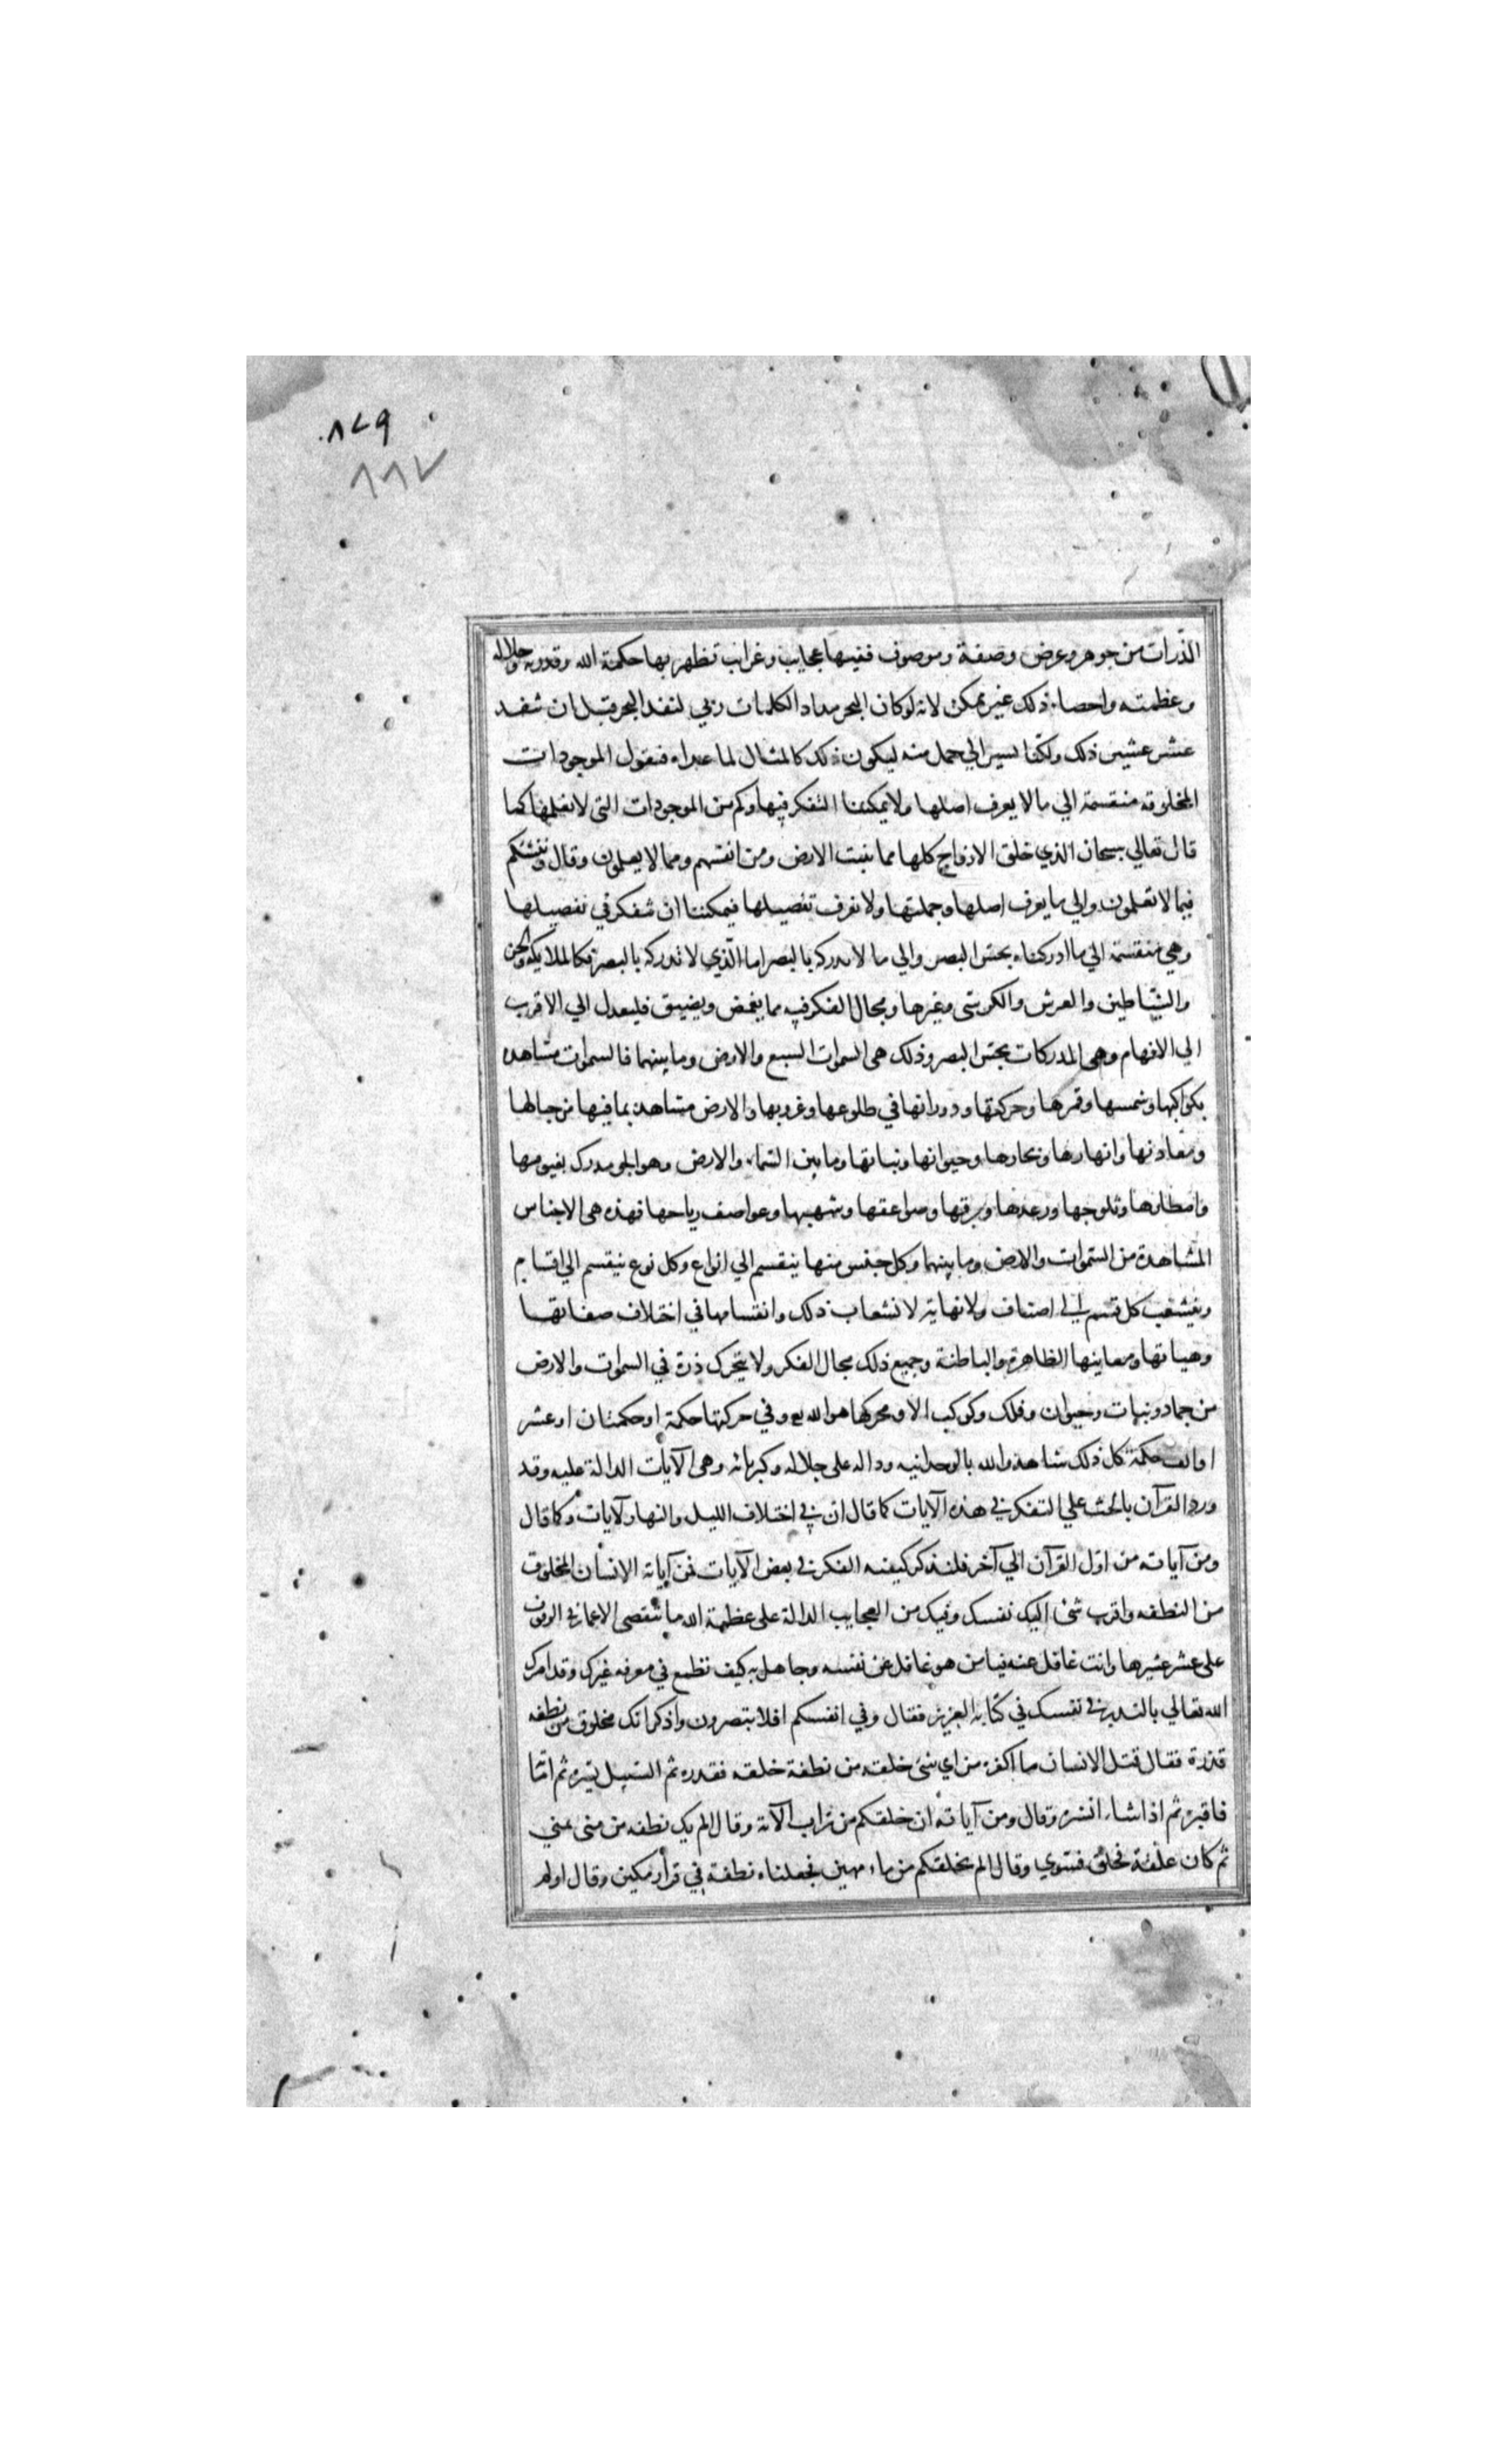 ٨٧٩
٨٨٧
الذرات من جوهر وعرض وصفة وموصوف ففيها عجايب وغرايب تظهر بها حكمة الله وقدرته وجلاله
وعظمته واحصاء ذلك غير ممكن لانه لو كان البحر مدادا لكلمات ربي لنفد البحر قبل ان تنفد
عشر عشير ذلك ولكنا نسير الي جمل منه ليكون ذلك كالمثال لما عداه فنقول الموجودات
المخلوقه منقسمة الي ما لا يعرف اصلها ولا يمكننا التفكر فيها وكم من الموجودات التي لا نعلمها كما
قال تعالي سبحان الذي خلق الازواج كلها مما تنبت الارض ومن انفسهم ومما لا يعلمون وقال وننشئكم
فيما لا تعلمون والي ما يعرف اصلها وجملتها ولا نعرف تفصيلها فيمكننا ان نتفكر في تفصيلها
وهي منقسمة الي ما ادركناه بحس البصر والي ما لا ندركه بالبصر اما الذي لا ندركه بالبصر فكالملايكه والجن
والشياطين والعرش والكرسي وغيرها ومجال الفكر فيه مما يغمض ويضيق فليعدل الي الاقرب
الي الافهام وهي المدركات بحس البصر وذلك هي السموات السبع والارض وما بينهما فالسموات مشاهده
بكواكبها وشمسها وقمرها وحركتها ودورانها في طلوعها وغروبها والارض مشاهدة بما فيها من جبالها
ومعادنها وانهارها وبحارها وحيوانها ونباتها وما بين السماء والارض وهو الجو مدرك بغيومها
وامطارها وثلوجها ورعدها وبرقها وصواعقها وشهبها وعواصف رياحها فهذه هي الاجناس
المشاهدة من السموات والارض وما بينهما وكل جنس منها ينقسم الي انواع وكل نوع ينقسم الي اقسام
ويتشعب كل قسم الي اصناف ولا نهاية لانشعاب ذلك وانقسامها في اختلاف صفاتها
وهيئاتها ومعاينها الظاهرة والباطنة وجميع ذلك مجال الفكر ولا يتحرك ذرة في السموات والارض
من جماد ونبات وحيوان وفلك وكوكب الا ومحركها هو الله تع وفي حركتها حكمة او حكمتان او عشر
او الف حكمة كل ذلك شاهد الله بالوحدانيه وداله علي جلاله وكبريائه وهي الآيات الدالة عليه وقد
ورد القرآن بالحث علي التفكر في هذه الآيات كما قال ان في اختلاف الليل والنهار لآيات وكما قال
ومن آياته من اول القرآن الي آخره فلنذكر كيفيه الفكر في بعض الآيات فمن آياته الانسان المخلوق
من النطفه واقرب شئ اليك نفسك وفيك من العجايب الدالة علي عظمة الله ما تنقضي الاعمار في الوقوف
علي عشر عشيرها وانت غافل عنه فيا من هو غافل عن نفسه وجاهل به كيف تطمع في معرفه غيرك وقد امرك
الله تعالي بالتدبر في نفسك في كتابه العزيز فقال وفي انفسكم افلا تبصرون واذكر انك مخلوق من نطفه
قذرة فقال قتل الانسان ما اكفره من اي شئ خلقه من نطفة خلقه فقدره ثم السبيل يسره ثم اماته
فاقبره ثم اذا شاء انشره وقال ومن آياته ان خلقكم من تراب الآية وقال الم يك نطفه من مني يمني
ثم كان علقة فخلق فسوي وقال الم نخلقكم من ماء مهين فجعلناه نطفة في قرار مكين وقال اولم